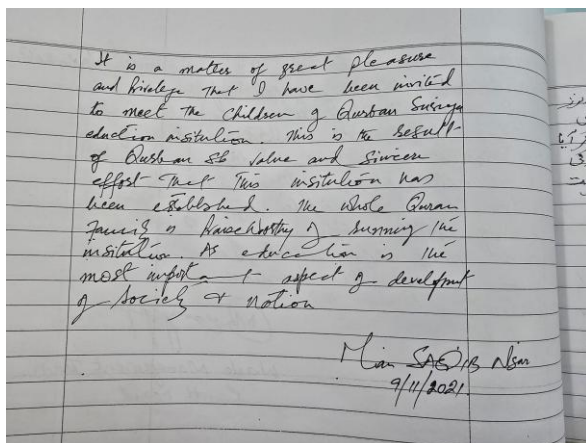 It is a matter of great pleasure
and Privilege that I have been invited
to meet the children of Qurban Suraya
eduction insitution. This is the result
of Qurban Sb value and Sincere
effort that This insitution has
been established. The whole Quran
Family is Praiseworthy of running the
insitution. As education is the
most important aspect of develepment
of society & nation
Mian SAQIB Nisar
9/11/2021.